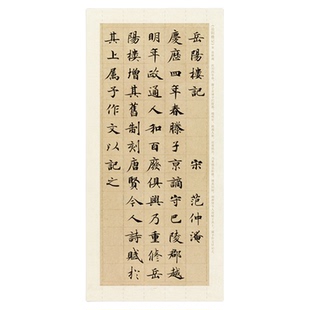 岳陽樓記　宋　范仲淹
慶歷四年春滕子京謫守巴陵郡越
明年政通人和百廢俱興乃重修岳
陽樓增其舊制刻唐賢今人詩賦於
其上屬予作文以記之